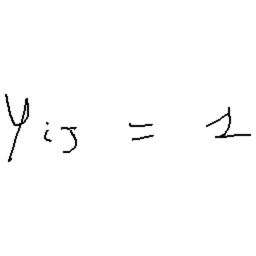 y_{ij} = 1